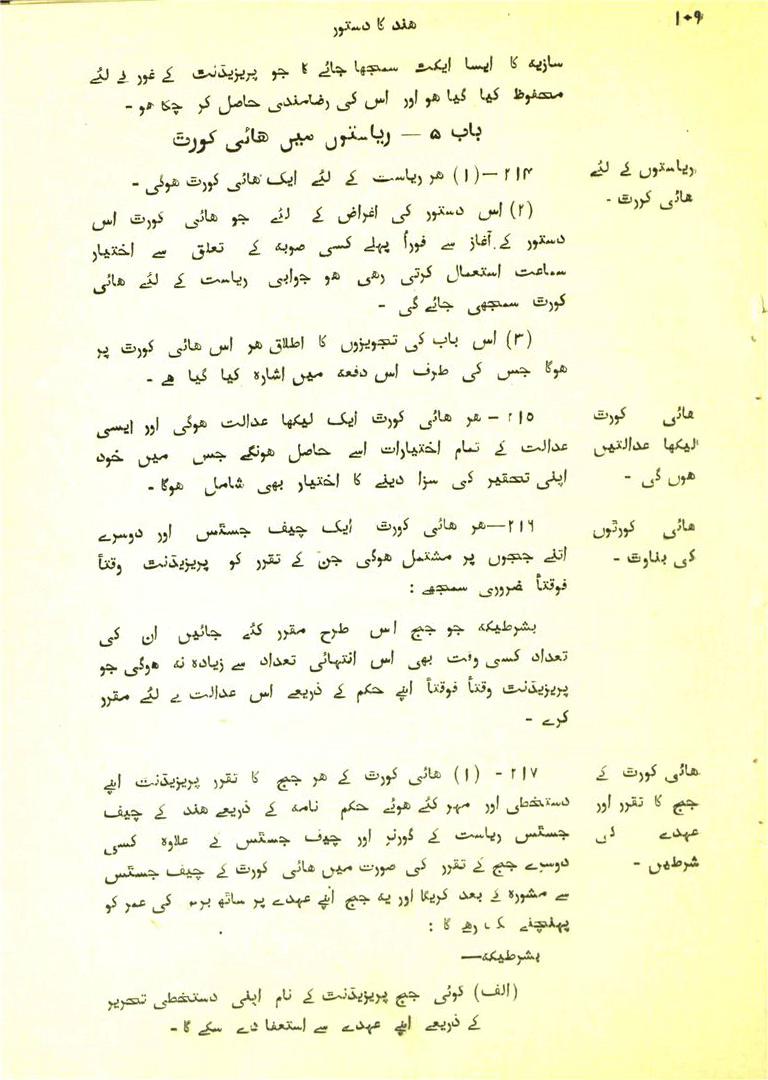 ۱۰۹
هند کا دستور
سازیه کا ایسا ایکٹ سمجھا جائے گا جو پریزیڈنٹ کے غور کے لئے
محفوظ کیا گیا هو اور اس کی رضامندی حاصل کر چکا هو -
باب ۵ — ریاستوں میں هائی کورٹ
ریاستوں کے لئے
هائی کورٹ -
۲۱۴—(۱) هر ریاست کے لئے ایک هائی کورٹ هوگی -
(۲) اس دستور کی اغراض کے لئے جو هائی کورٹ اس
دستور کے آغاز سے فوراً پہلے کسی صوبه کے تعلق سے اختیار
سماعت استعمال کرتی رهی هو جوابی ریاست کے لئے هائی
کورٹ سمجھی جائے گی -
(۳) اس باب کی تجویزوں کا اطلاق هر اس هائی کورٹ پر
هوگا جس کی طرف اس دفعه میں اشارہ کیا گیا هے -
هائی کورٹ
لیکھا عدالتیں
هوں گی -
۲۱۵ - هر هائی کورٹ ایک لیکھا عدالت هوگی اور ایسی
عدالت کے تمام اختیارات اسے حاصل هونگے جس میں خود
اپنی تحقیر کی سزا دینے کا اختیار بھی شامل هوگا -
هائی کورٹوں
کی بناوٹ -
۲۱۶—هر هائی کورٹ ایک چیف جسٹس اور دوسرے
اتنے ججوں پر مشتمل هوگی جن کے تقرر کو پریزیڈنٹ وقتاً
فوقتاً ضروری سمجھے :
بشرطیکه جو جج اس طرح مقرر کئے جائیں ان کی
تعداد کسی وقت بھی اس انتہائی تعداد سے زیادہ نه هوگی جو
پریزیڈنٹ وقتاً فوقتاً اپنے حکم کے ذریعے اس عدالت کے لئے مقرر
کرے -
هائی کورٹ کے
جج کا تقرر اور
عہدے کی
شرطیں -
۲۱۷ - (۱) هائی کورٹ کے هر جج کا تقرر پریزیڈنٹ اپنے
دستخطی اور مہر کئے هوئے حکم نامه کے ذریعے هند کے چیف
جسٹس ریاست کے گورنر اور چیف جسٹس کے علاوہ کسی
دوسرے جج کے تقرر کی صورت میں هائی کورٹ کے چیف جسٹس
سے مشورہ کے بعد کریگا اور یه جج اپنے عہدے پر ساٹھ برس کی عمر کو
پہنچنے تک رهے گا :
بشرطیکه—
(الف) کوئی جج پریزیڈنٹ کے نام اپنی دستخطی تحریر
کے ذریعے اپنے عہدے سے استعفا دے سکے گا -